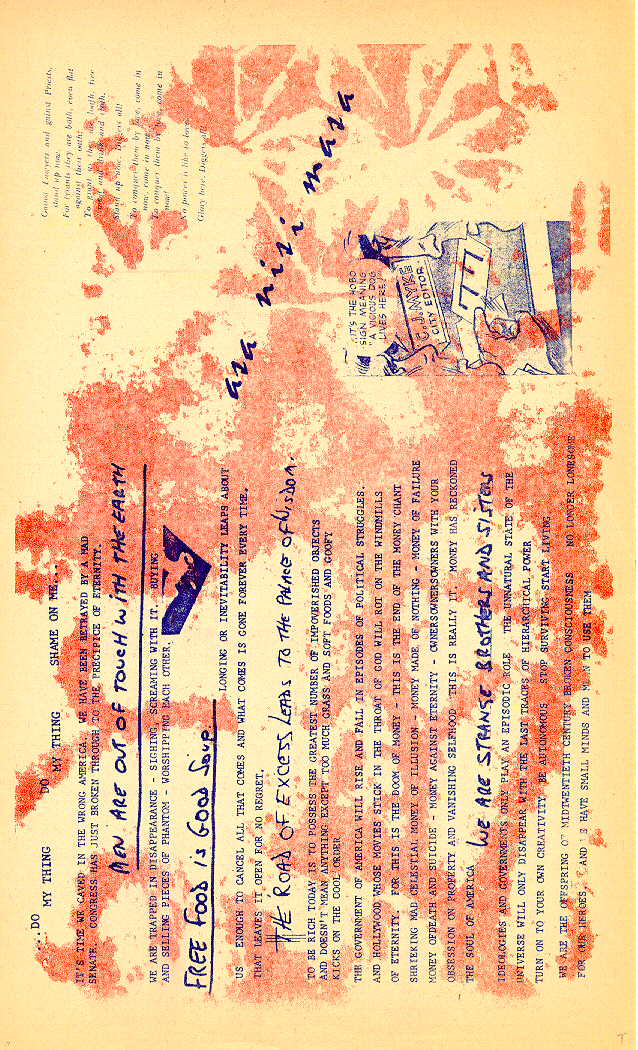 ...DO MY THING DO MY THING SHAME ON ME....
IT'S TIME WE CAVED IN THE WRONG AMERICA. WE HAVE BEEN BETRAYED BY A MAD
SENATE. CONGRESS HAS JUST BROKEN THROUGH TO THE PRECIPICE OF ETERNITY.
MEN ARE OUT OF TOUCH WITH THE EARTH
WE ARE TRAPPED IN DISAPPEARANCE - SIGHING, SCREAMING WITH IT. BUYING
AND SELLING PIECES OF PHANTOM - WORSHIPPING EACH OTHER.
FREE FOOD IS GOOD SOUP.
LONGING OR INEVITABILITY LEAPS ABOUT
US ENOUGH TO CANCEL ALL THAT COMES AND WHAT COMES IS GONE FOREVER EVERY TIME.
THAT LEAVES IT OPEN FOR NO REGRET.
THE ROAD OF EXCESS LEADS TO THE PALACE OF WISDOM.
TO BE RICH TODAY IS TO POSSESS THE GREATEST NUMBER OF IMPOVERISHED OBJECTS
AND DOESN'T MEAN ANYTHING EXCEPT TOO MUCH GRASS AND SOFT FOODS AND GOOFY
KICKS ON THE COOL ORDER
THE GOVERNMENT OF AMERICA WILL RISE AND FALL IN EPISODES OF POLITICAL STRUGGLES.
AND HOLLYWOOD WHOSE MOVIES STICK IN THE THROAT OF GOD WILL ROT ON THE WINDMILLS
OF ETERNITY. FOR THIS IS THE DOOM OF MONEY - THIS IS THE END OF THE MONEY CHANT
SHRIEKING MAD CELESTIAL MONEY OF ILLUSION - MONEY MADE OF NOTHING - MONEY OF FAILURE
MONEY OFDEATH AND SUICIDE - MONEY AGAINST ETERNITY - OWNERSOWNERSOWNERS WITH YOUR
OBSESSION ON PROPERTY AND VANISHING SELFHOOD THIS IS REALLY IT. MONEY HAS RECKONED
THE SOUL OF AMERICA
WE ARE STRANGE BROTHERS AND SISTERS
IDEOLOGIES AND GOVERNMENTS ONLY PLAY AN EPISODIC ROLE THE UNNATURAL STATE OF THE
UNIVERSE WILL ONLY DISAPPEAR WITH THE LAST TRACES OF HIERARCHICAL POWER
TURN ON TO YOUR OWN CREATIVITY BE AUTONOMOUS STOP SURVIVING START LIVING
WE ARE THE OFFSPRING OF MIDTWENTIETH CENTURY BROKEN CONSCIOUSNESS NO LONGER LONESOME
FOR OUR HEROES AND WE HAVE SMALL MINDS AND MEAN TO USE THEM.
asa nisi masa
IT'S THE HOBO
SIGN MEANING
"A VICIOUS DOG
LIVES HERE"
C.J. MYKE
CITY EDITOR
Gainst Lawyers and gainst Priests,
stand up now
For tyrants they are both, even flat
against their oath;
To grant us they are loath, free
meat and drink and cloth.
Stand up now, Diggers all!
To conquer them by love, come in
now, come in now
To conquer them by love, come in
now!
No power is like to love,
Glory here, Diggers all!